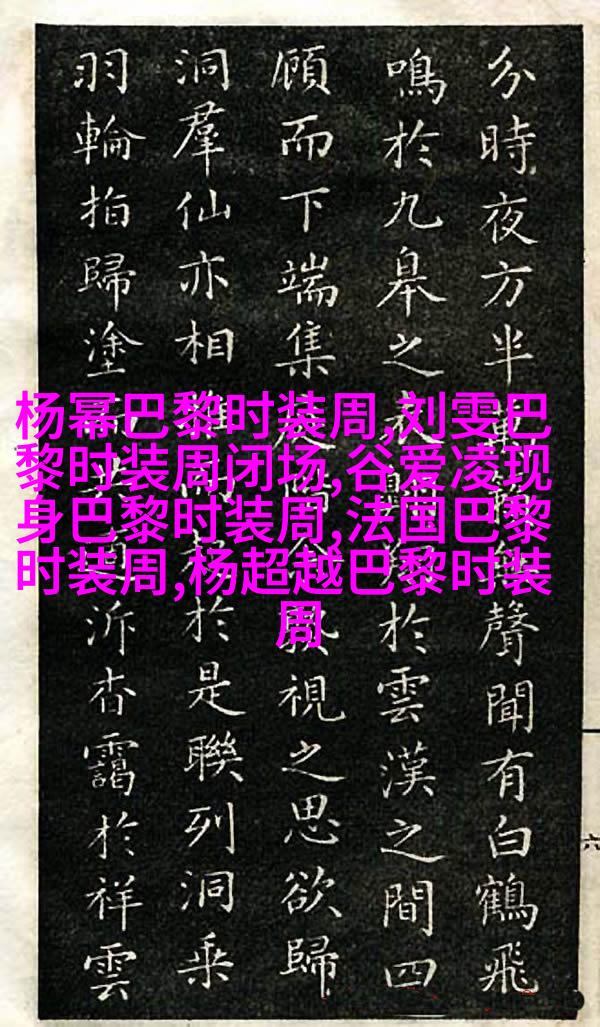 杨幂巴黎时装周,刘雯巴
黎时装周闭场,谷爱凌现
身巴黎时装周,法国巴黎
时装周,杨超越巴黎时装
周
分時夜方半聲聞有白鶴飛
鳴於九皋之於雲漢之間四
顧而下端集視之思欲歸
洞羣仙亦相於是聯列洞乘
羽輪拍歸塗泝杳靄於祥雲
六